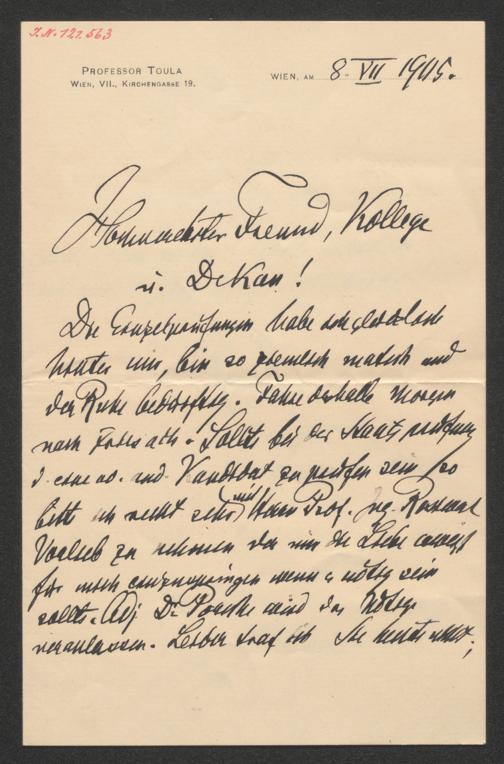 I.N. 121.563
PROFESSOR TOULA
WIEN, VII., KIRCHENGASSE 19.
WIEN, AM 8. VII 1905.
Hochverehrter Freund, Kollege
u. Dekan!
Die Einzelprüfungen habe ich glücklich
hinter mir, bin so ziemlich matsch und
der Ruhe bedürftig. Fahre deshalb morgen
nach. Sollte bei der Staatsprüfung
Kandidat zu prüfen sein so
bitte ich recht sehr mit Herrn Prof.
Vorlieb zu nehmen der mir die Liebe erweist
für mich einzuspringen wenn es nötig sein
sollte. Adj. Dr. wird das Nötige
veranlassen. Leider traf ich Sie heute nicht;